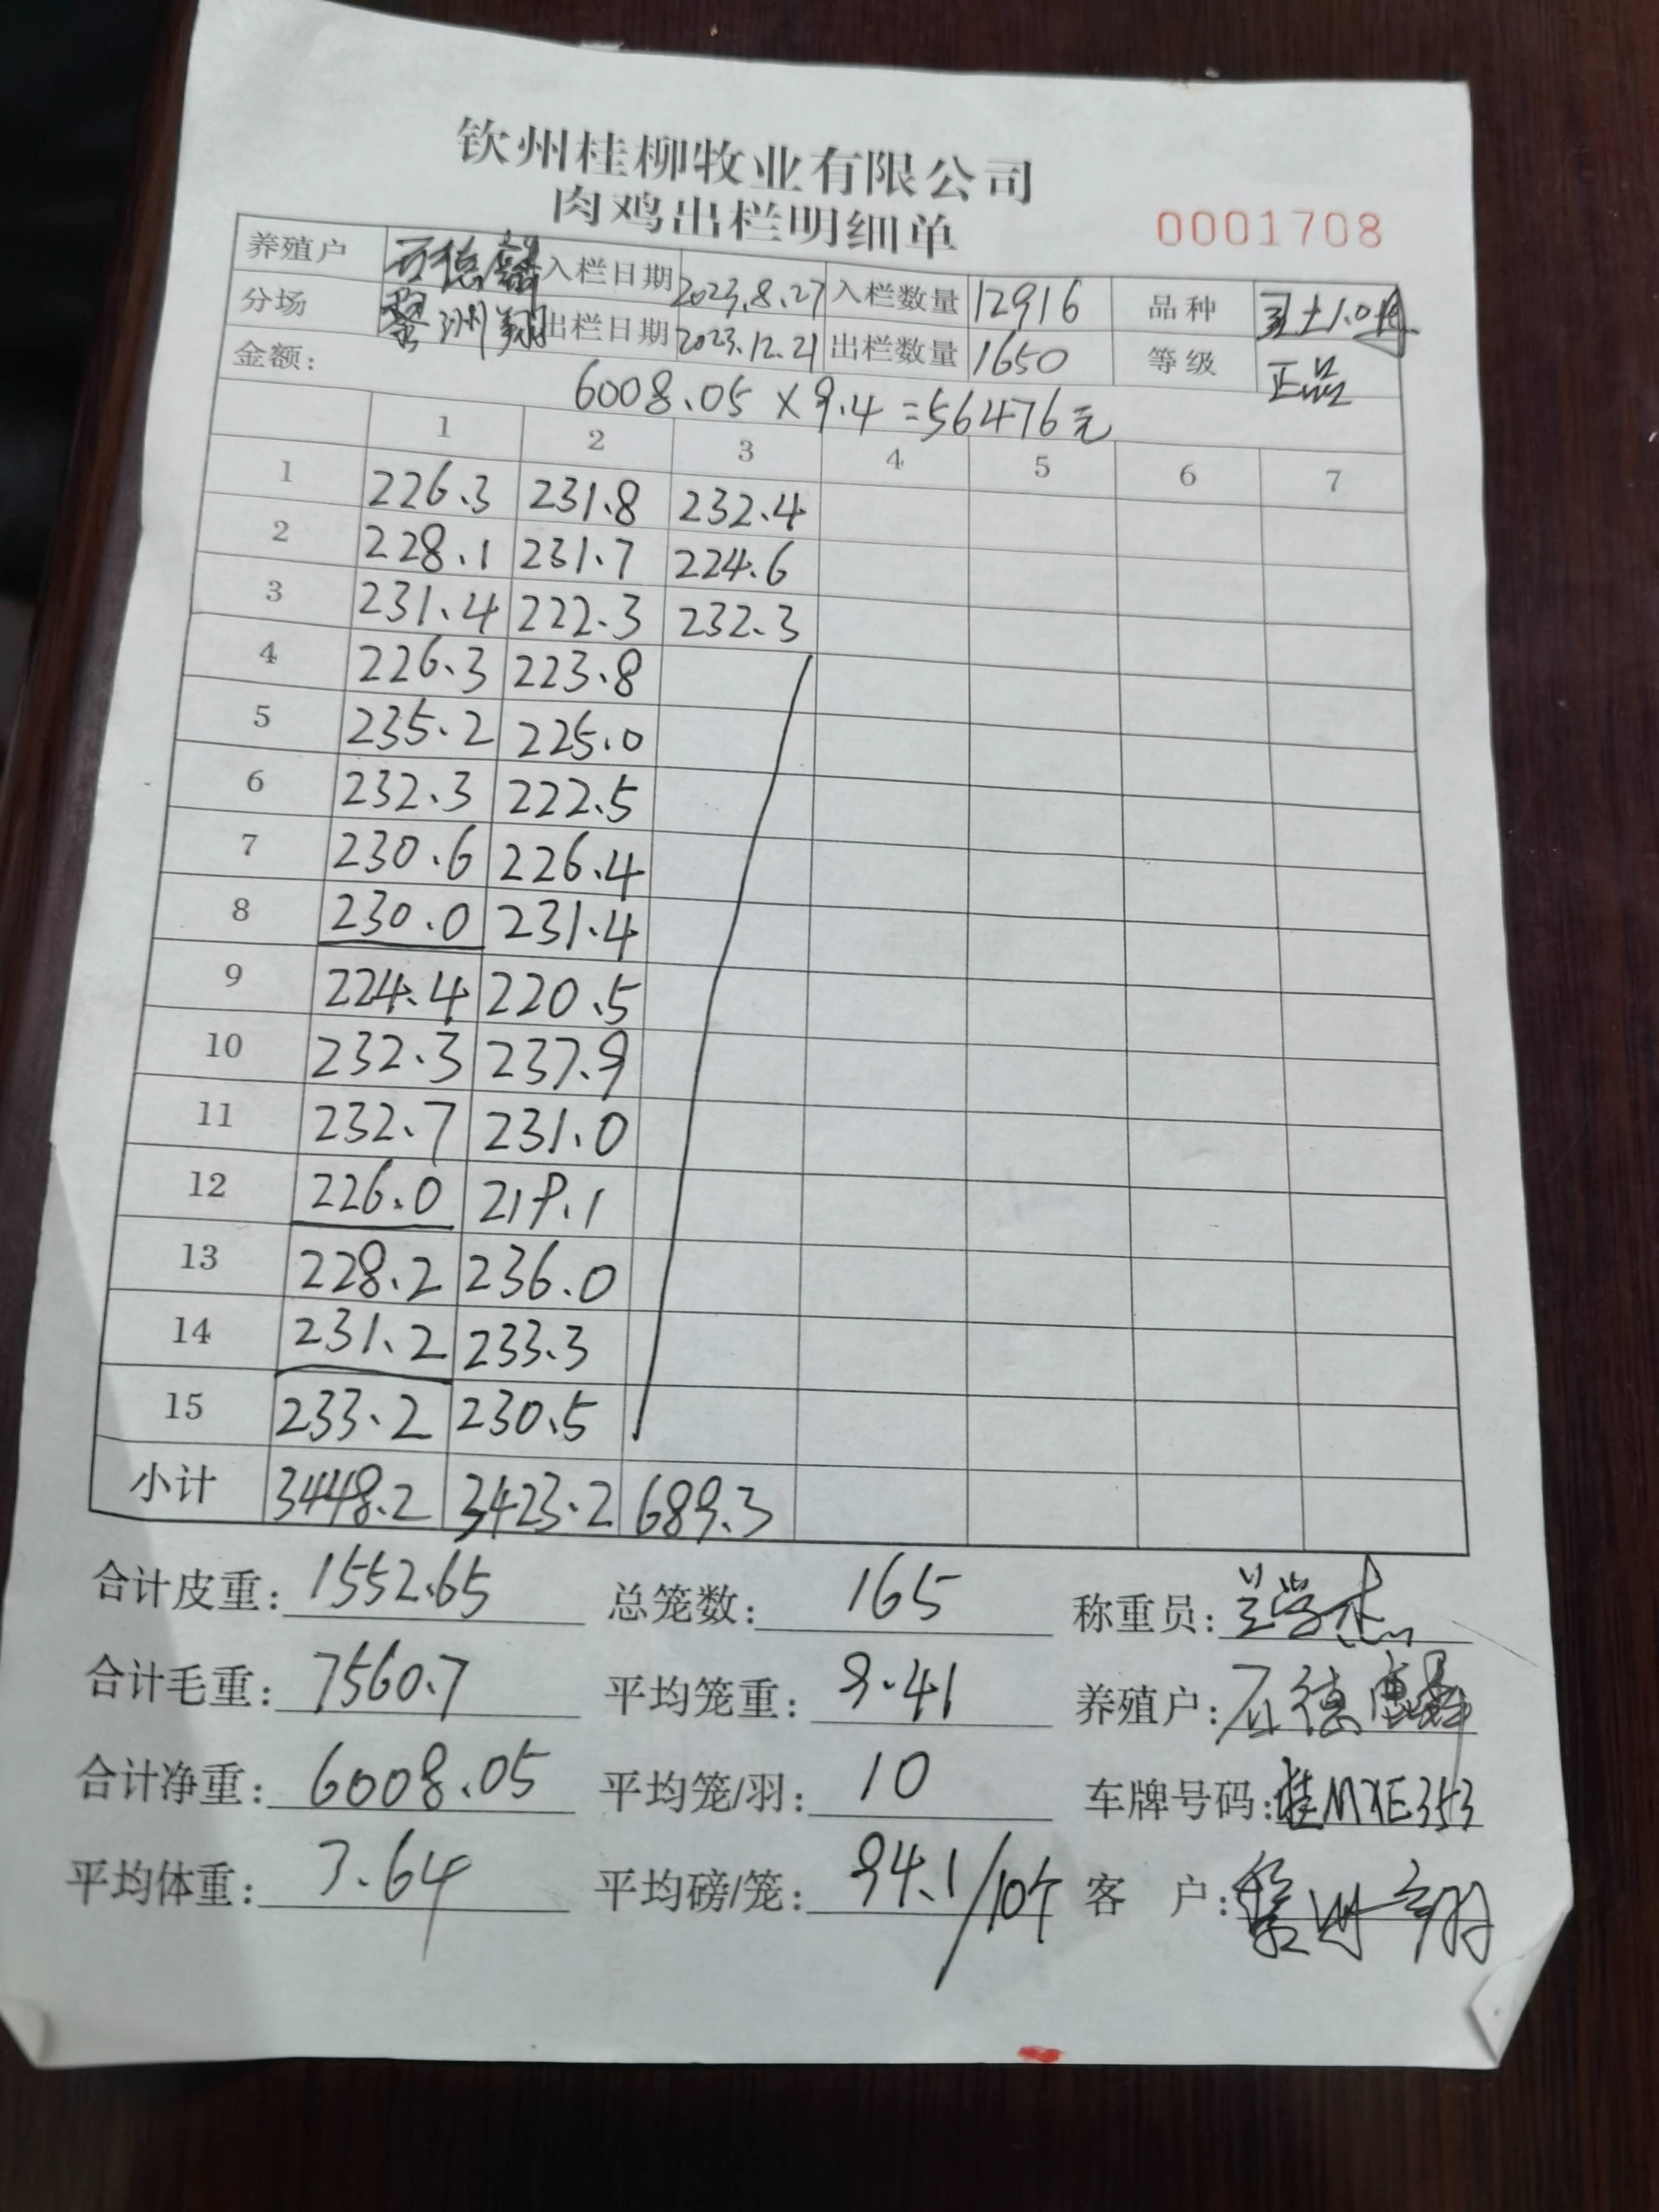 钦州桂柳牧业有限公司
肉鸡出栏明细单
0001708
养殖户 石德 入栏日期 2023.8.27 入栏数量 12916 品种
分场 黎洲翔 出栏日期 2023.12.21 出栏数量 1650 等级 正品
金额: 6008.05×9.4=56476元
1 2 3 4 5 6 7
1 226.3 231.8 232.4
2 228.1 231.7 224.6
3 231.4 222.3 232.3
4 226.3 223.8
5 235.2 225.0
6 232.3 222.5
7 230.6 226.4
8 230.0 231.4
9 224.4 220.5
10 232.3 237.9
11 232.7 231.0
12 226.0 219.1
13 228.2 236.0
14 231.2 233.3
15 233.2 230.5
小计 3448.2 3423.2 689.3
合计皮重: 1552.65 总笼数: 165 称重员:
合计毛重: 7560.7 平均笼重: 9.41 养殖户: 石德
合计净重: 6008.05 平均笼/羽: 10 车牌号码: 桂MXE353
平均体重: 3.64 平均磅/笼: 94.1/10个 客户: 黎洲翔